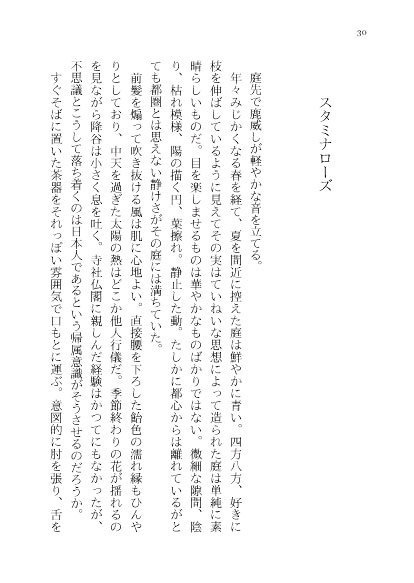 30
スタミナローズ
庭先で鹿威しが軽やかな音を立てる。
年々みじかくなる春を経て、夏を間近に控えた庭は鮮やかに青い。四方八方、好きに
枝を伸ばしているように見えてその実はていねいな思想によって造られた庭は単純に素
晴らしいものだ。目を楽しませるものは華やかなものばかりではない。微細な隙間、陰
り、枯れ模様、陽の描く円、葉擦れ。静止した動。たしかに都心からは離れているがと
ても都圏とは思えない静けさがその庭には満ちていた。
前髪を煽って吹き抜ける風は肌に心地よい。直接腰を下ろした飴色の濡れ縁もひんや
りとしており、中天を過ぎた太陽の熱はどこか他人行儀だ。季節終わりの花が揺れるの
を見ながら降谷は小さく息を吐く。寺社仏閣に親しんだ経験はかつてにもなかったが、
不思議とこうして落ち着くのは日本人であるという帰属意識がそうさせるのだろうか。
すぐそばに置いた茶器をそれっぽい雰囲気で口もとに運ぶ。意図的に肘を張り、舌を